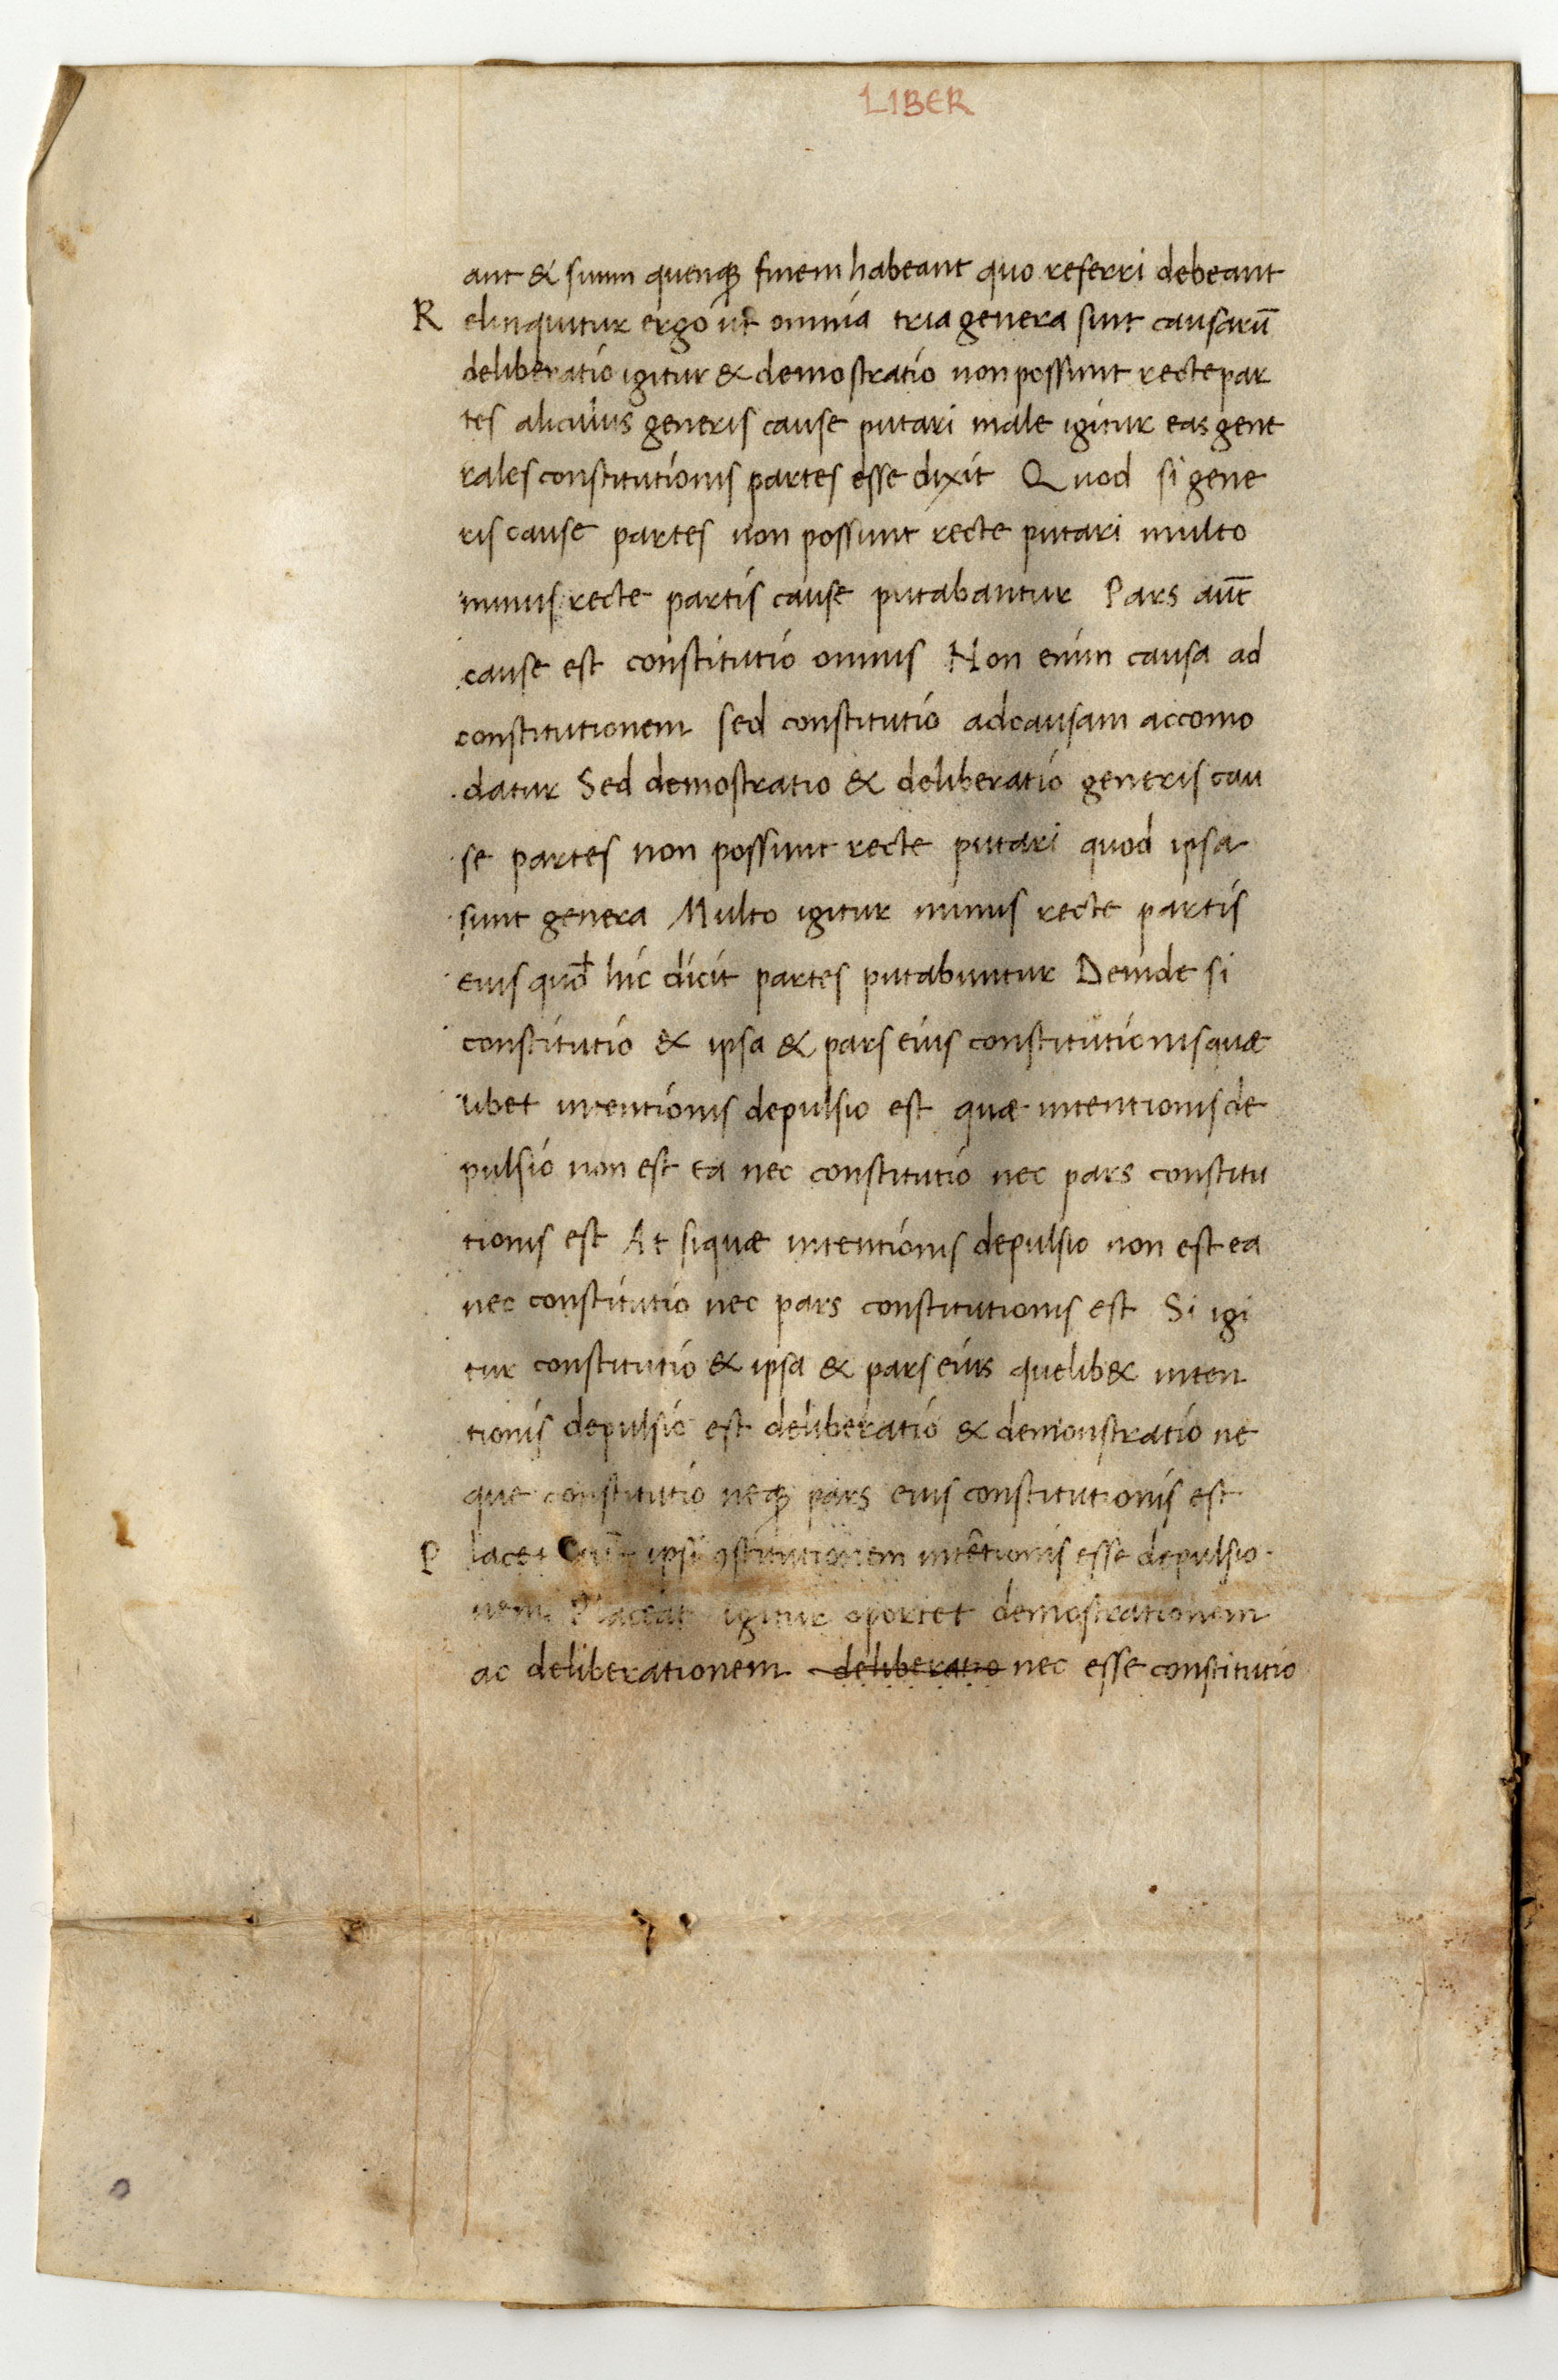 LIBER
ant & suum quenqꝫ finem habeant quo referri debeant
R elinquitur ergo ut omnia tria genera sint causarū
deliberatio igitur & demostratio non possunt recte par
tes alicuius generis cause putari male igitur eas gene
rales constitutionis partes esse dixit Quod si gene
ris cause partes non possunt recte putari multo
minus recte partis cause putabantur Pars aut̄
cause est constitutio omnis Non enim causa ad
constitutionem sed constitutio ad causam accomo
datur Sed demostratio & deliberatio generis cau
se partes non possunt recte putari quod ipsa
sunt genera Multo igitur minus recte partis
eius quod̄ hic dicit partes putabuntur Deinde si
constitutio & ipsa & pars eius constitutionis quæ
libet intentionis depulsio est quæ intentionis de
pulsio non est ea nec constitutio nec pars constitu
tionis est At si quæ intentionis depulsio non est ea
nec constitutio nec pars constitutionis est Si igi
tur constitutio & ipsa & pars eius quelib& inten
tionis depulsio est deliberatio & demonstratio ne
que constitutio neqꝫ pars eius constitutionis est
P lacet ipsi ꝯstitutionem intētionis esse depulsio
nem Placeat igitur oportet demostrationem
ac deliberationem deliberatio nec esse constitutio